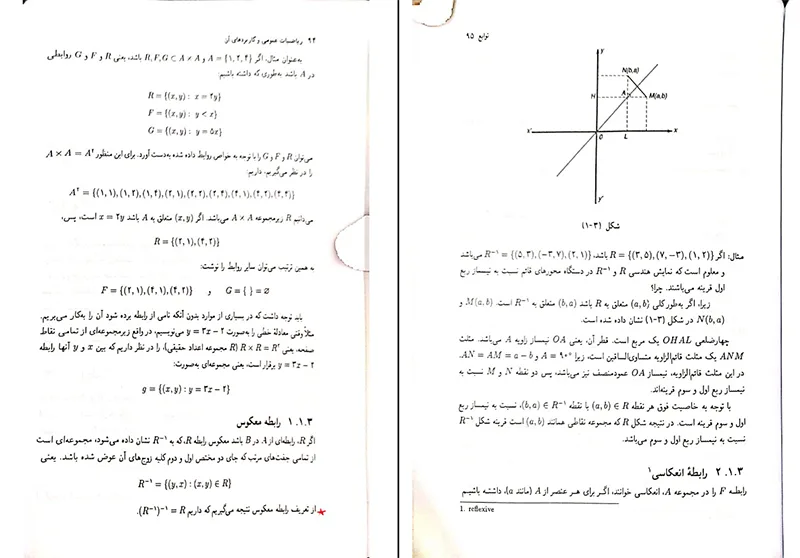 ۹۴ ریاضیات عمومی و کاربردهای آن
به‌عنوان مثال، اگر A = {۱, ۲, ۴} و R, F, G ⊂ A × A باشد، یعنی R و F و G روابطی
در A باشد به‌طوری که داشته باشیم:
R = {(x, y) : x = ۲y}
F = {(x, y) : y < x}
G = {(x, y) : y = ۵x}
می‌توان R و F و G را با توجه به خواص روابط داده شده به‌دست آورد. برای این منظور A × A = A۲
را در نظر می‌گیریم، داریم:
می‌دانیم R زیرمجموعه A × A می‌باشد. اگر (x, y) متعلق به A باشد x = ۲y است، پس،
R = {(۲, ۱), (۴, ۲)}
به همین ترتیب می‌توان سایر روابط را نوشت:
F = {(۲, ۱), (۴, ۱), (۴, ۲)} و G = { } = ∅
باید توجه داشت که در بسیاری از موارد بدون آنکه نامی از رابطه برده شود آن را به‌کار می‌بریم.
مثلاً وقتی معادلهٔ خطی را به‌صورت y = ۳x − ۲ می‌نویسیم، در واقع زیرمجموعه‌ای از تمامی نقاط
صفحه، یعنی R × R = R۲ (R مجموعه اعداد حقیقی)، را در نظر داریم که بین x و y آنها رابطه
y = ۳x − ۲ برقرار است، یعنی مجموعه‌ای به‌صورت:
g = {(x, y) : y = ۳x − ۲}
۱.۱.۳ رابطه معکوس
اگر R، رابطه‌ای از A در B باشد معکوس رابطه R، که به R−۱ نشان داده می‌شود، مجموعه‌ای است
از تمامی جفت‌های مرتب که جای دو مختص اول و دوم کلیه زوج‌های آن عوض شده باشد. یعنی
R−۱ = {(y, x) : (x, y) ∈ R}
از تعریف رابطه معکوس نتیجه می‌گیریم که داریم (R−۱)−۱ = R.
توابع ۹۵
y
N(b,a)
H A M(a,b)
x' O L x
y'
شکل (۳-۱)
مثال: اگر R = {(۳, ۵), (۷, −۳), (۱, ۲)} باشد، R−۱ = {(۵, ۳), (−۳, ۷), (۲, ۱)} می‌باشد
و معلوم است که نمایش هندسی R و R−۱ در دستگاه محورهای قائم نسبت به نیمساز ربع
اول قرینه می‌باشند. چرا؟
زیرا، اگر به‌طور کلی (a, b) متعلق به R باشد (b, a) متعلق به R−۱ است. M(a, b) و
N(b, a) در شکل (۳-۱) نشان داده شده است.
چهارضلعی OHAL یک مربع است. قطر آن، یعنی OA نیمساز زاویه A می‌باشد. مثلث
ANM یک مثلث قائم‌الزاویه متساوی‌الساقین است، زیرا A = ۹۰° و AN = AM = a − b.
در این مثلث قائم‌الزاویه، نیمساز OA عمودمنصف نیز می‌باشد، پس دو نقطه N و M نسبت به
نیمساز ربع اول و سوم قرینه‌اند.
با توجه به خاصیت فوق هر نقطه (a, b) ∈ R با نقطه (b, a) ∈ R−۱، نسبت به نیمساز ربع
اول و سوم قرینه است. در نتیجه شکل R که مجموعه نقاطی همانند (a, b) است قرینه شکل R−۱
نسبت به نیمساز ربع اول و سوم می‌باشد.
۲.۱.۳ رابطهٔ انعکاسی۱
رابطه F را در مجموعه A، انعکاسی خوانند، اگر برای هر عنصر از A (مانند a)، داشته باشیم
1. reflexive